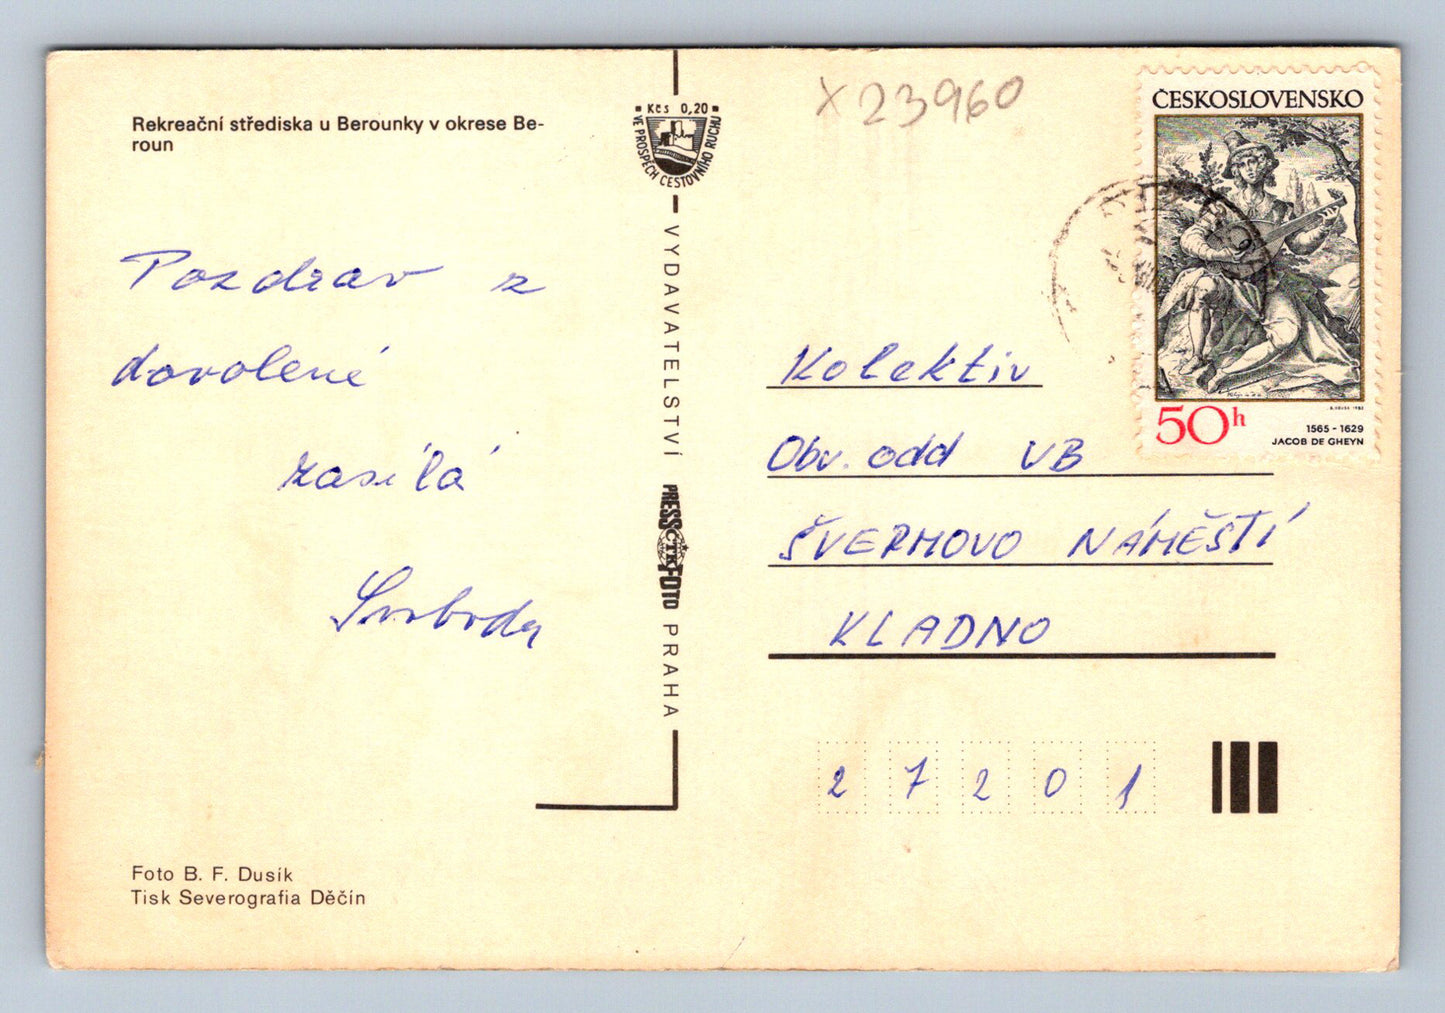 Rekreační střediska u Berounky v okrese Be-
roun
Pozdrav z
dovolené
zasílá
Svoboda
Foto B. F. Dusík
Tisk Severografia Děčín
Kčs 0,20
VE PROSPĚCH CESTOVNÍHO RUCHU
VYDAVATELSTVÍ PRESSFOTO PRAHA
ČTK
x 23960
ČESKOSLOVENSKO
50h
1565 - 1629
JACOB DE GHEYN
Kolektiv
Obv. odd VB
ŠVERMOVO NÁMĚSTÍ
KLADNO
2 7 2 0 1